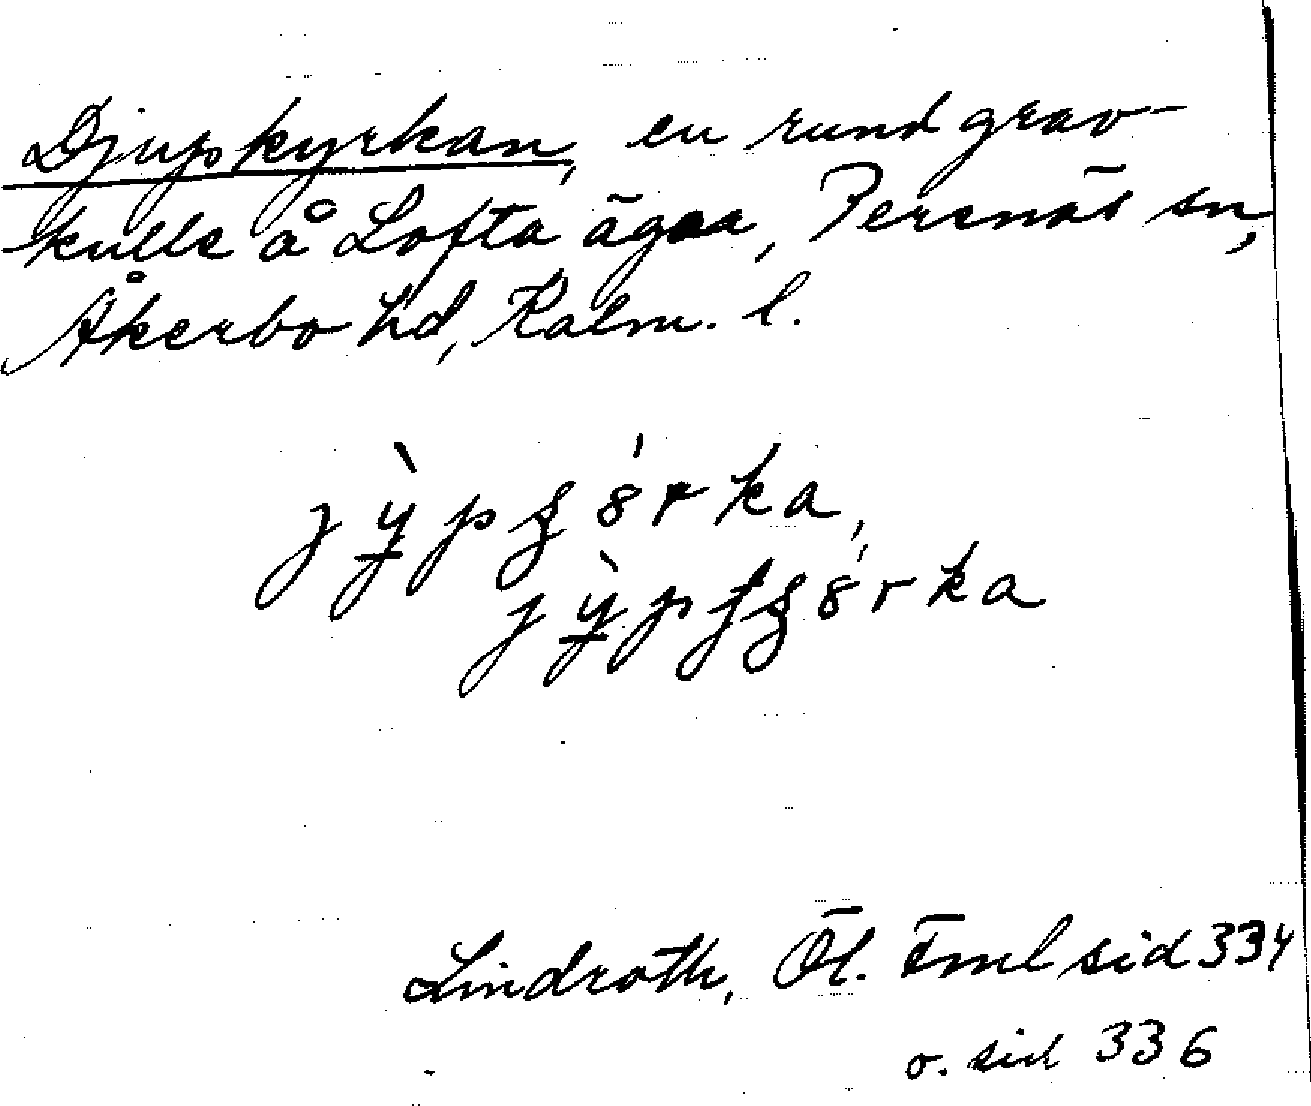 Djupkyrkan, en rund grav-
kulle å Lofta ägor, Persnäs sn,
Åkerbo hd, Kalm. l.
jỳ̠pʂ8́rka,
jỳ̠pfʂ8́rka
Lindroth, Öl. Fml sid 334
o. sid 336